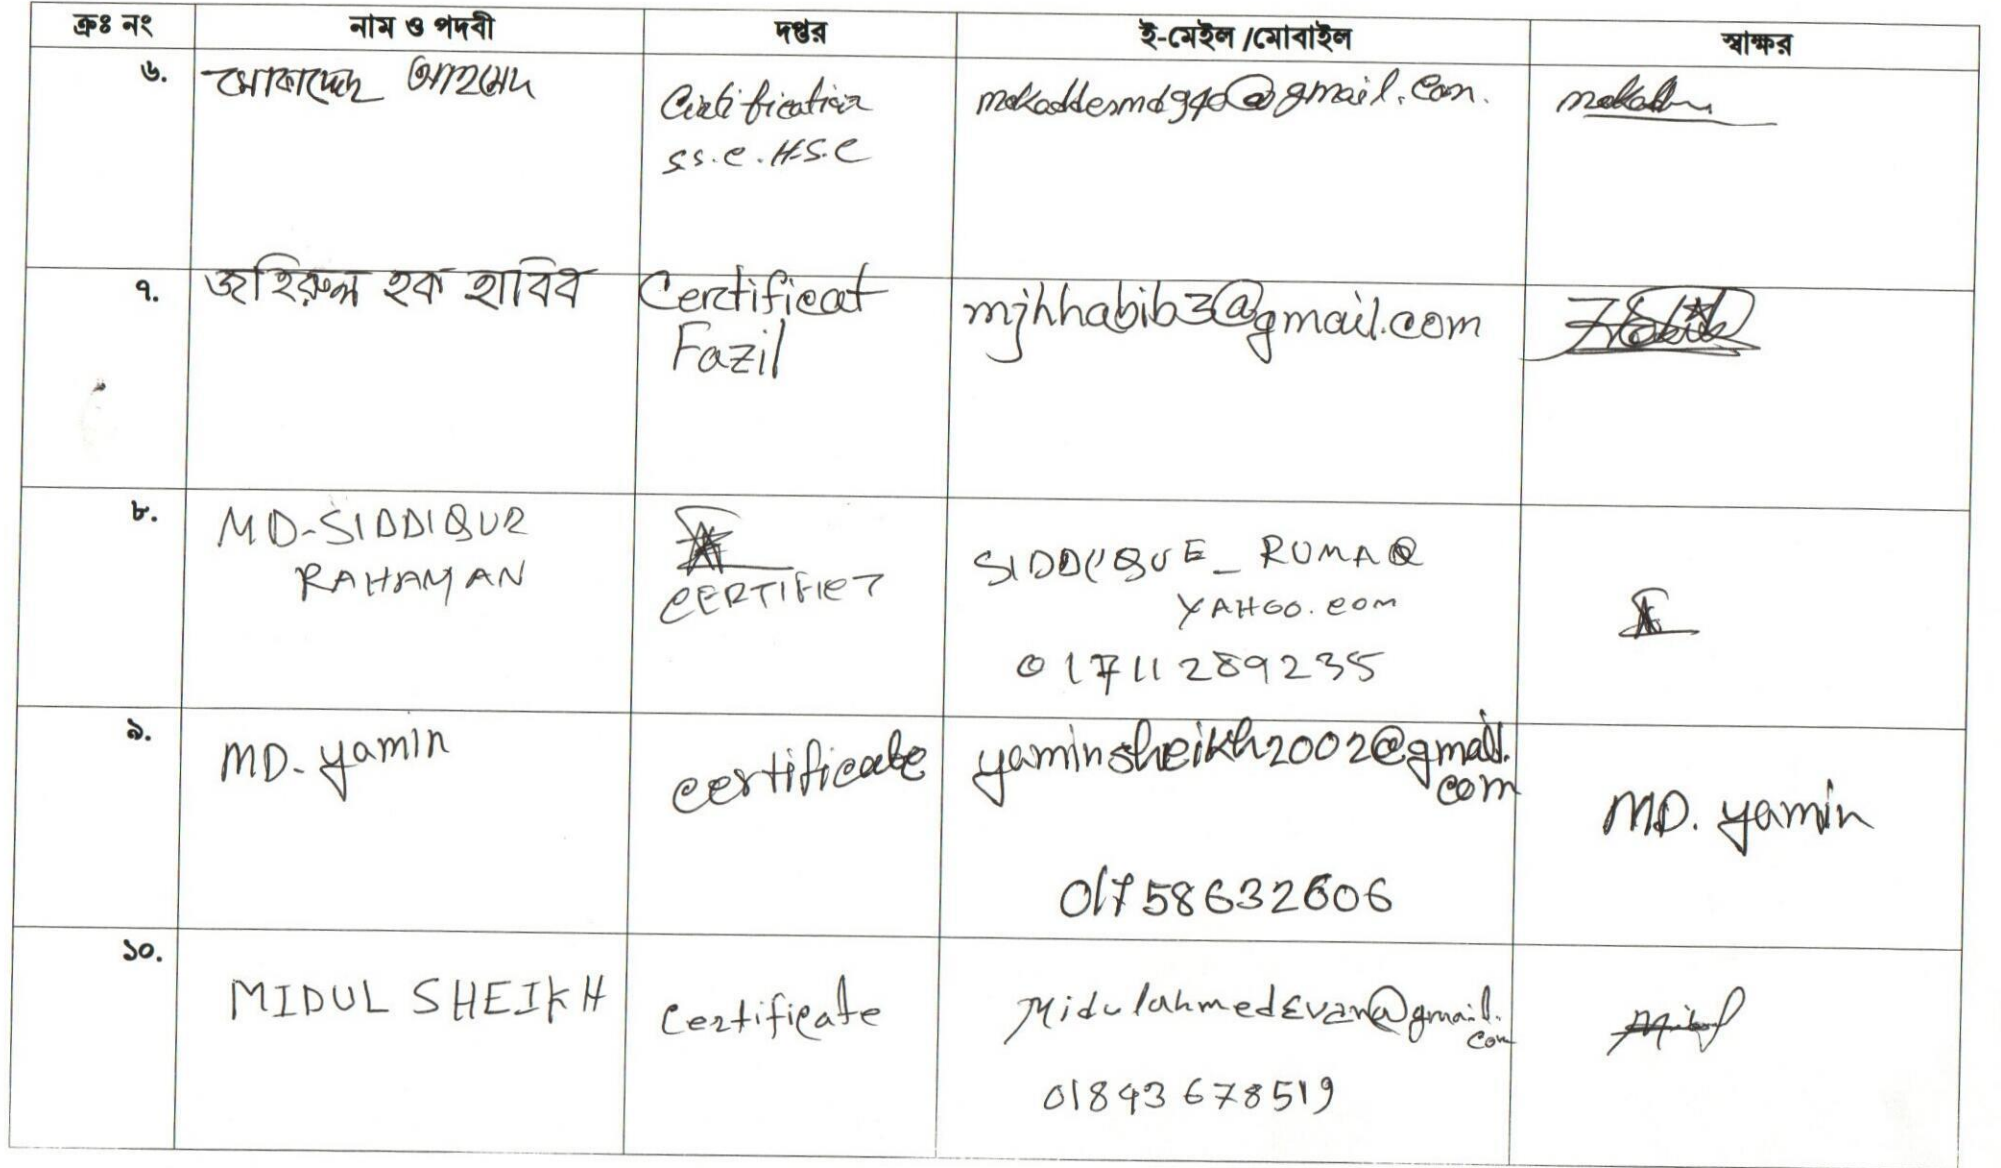 ক্রঃ নং নাম ও পদবী দপ্তর ই-মেইল /মোবাইল স্বাক্ষর
৬. মোকাদ্দেছ আহমেদ Certification mokaddesmd940@gmail.com.
SS.C. H-S.C
৭. জহিরুল হক হাবিব Certificat mjhhabib3@gmail.com
Fazil
৮. MD-SIDDIQUR
RAHAMAN
CERTIFIET
SIDDIQUE_RUMA@
YAHOO.com
01711289235
৯. MD. yamin certificate yaminsheikh2002@gmail.
com
MD. yamin
01758632606
১০. MIDUL SHEIKH Certificate MidulahmedEvan@gmail.
com
01843678519